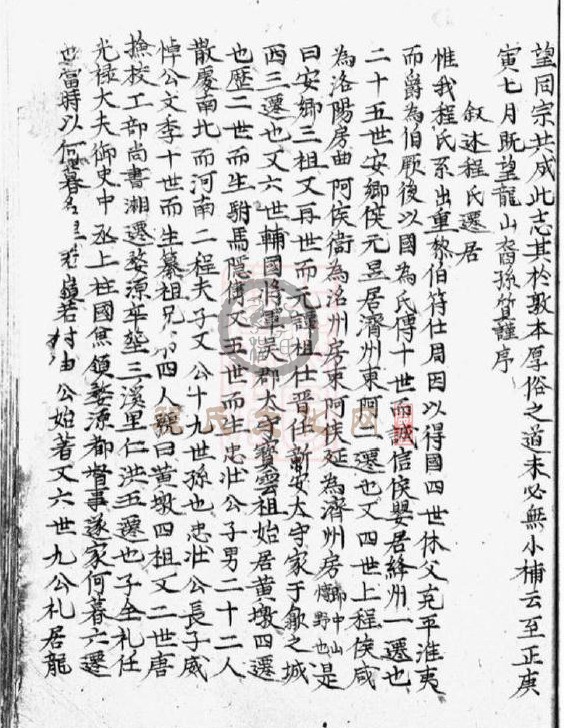 望同宗共成此志其於敦本厚俗之道未必無小補云至正庚
寅七月既望龍山裔孫質謹序
叙述程氏遷居
惟我程氏系出重黎伯符仕周因以得國四世休父克平淮夷
而爵為伯厥後以國為氏傳十世而誠信侯嬰居絳州一遷也
二十五世安鄉侯元昱居濟州東阿二遷也又四世上程侯咸
為洛陽房曲阿侯衞為洺州房東阿侯延為濟州房即中山博野也是
曰安鄉三祖又再世而元譚祖仕晋任新安太守家于歙之城
西三遷也又六世輔國將軍吴郡太守寳雲祖始居黄墩四遷
也歷二世而生駙馬隱傅又五世而生忠壮公子男二十二人
散慶南北而河南二程夫子文公十九世孫也忠壮公長子威
悼公文季十世而生纂祖兄弟四人號曰黄墩四祖又二世唐
撿校工部尚書湘遷婺源平壟三溪里仁洪五遷也子全礼任
光禄大夫御史中丞上柱國焦領婺源都督事遂家何暮六遷
也當時以何暮名里 嶺若 由公始著又六世九公礼居龍